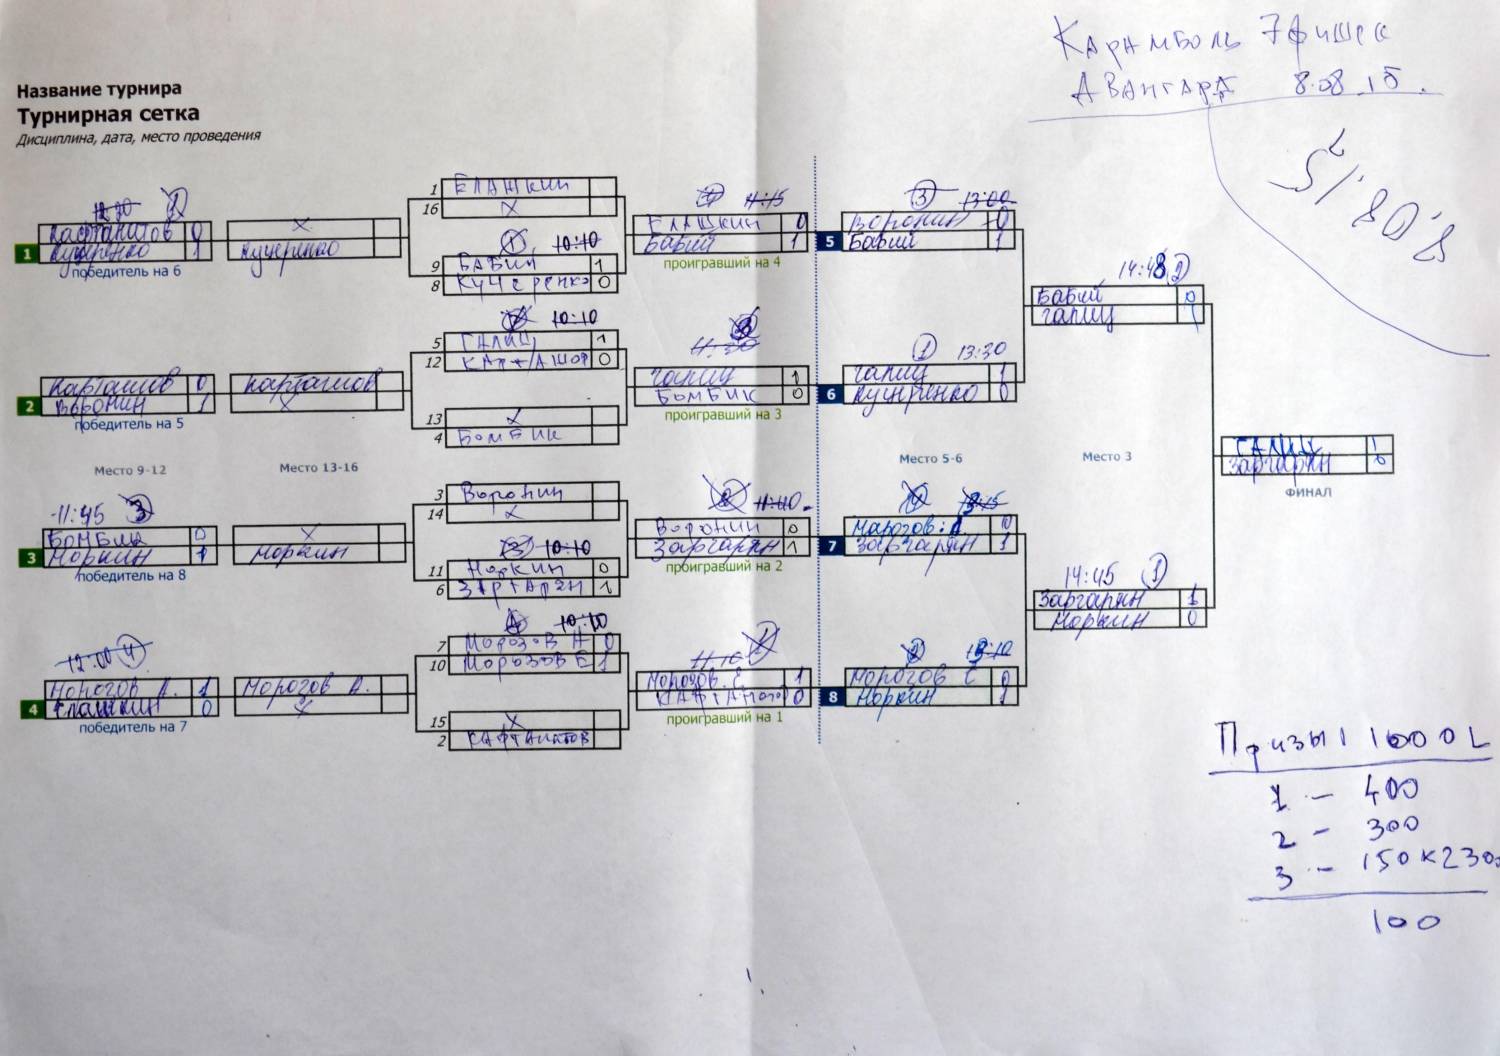 Карамболь 7 фишек
Авангард 8.08.15.
8.08.15
Название турнира
Турнирная сетка
Дисциплина, дата, место проведения
1
Кафтанатов 0
Кучеренко 1
победитель на 6
X
Кучеренко
1 Елашкин
16 X
1 10:10
9 Бабий 1
8 Кучеренко 0
4 11:15
Елашкин 0
Бабий 1
проигравший на 4
3 13:00
5
Воронин 0
Бабий 1
14:48 2
Бабий 0
Галиц 1
2
Карташов 0
Воронин 1
победитель на 5
Карташов
X
10:10
5 Галиц 1
12 0
13 X
4 Бомбик
11:30
Галиц 1
Бомбик 0
проигравший на 3
1 13:30
6
Галиц 1
Кучеренко 0
Место 9-12
Место 13-16
Место 5-6
Место 3
Галиц 1
Заргарян 0
ФИНАЛ
11:45 3
3
Бомбик 0
Норкин 1
победитель на 8
X
Норкин
3 Воронин
14 X
3 10:10
11 Норкин 0
6 Заргарян 1
2 11:40
Воронин 0
Заргарян 1
проигравший на 2
7
Морозов А 0
Заргарян 1
14:45 1
Заргарян 1
Норкин 0
12:00 4
4
Морозов А. 1
Елашкин 0
победитель на 7
Морозов А.
X
4 10:10
7 Морозов А 0
10 Морозов Е 1
15 X
2 Кафтанатов
1
Морозов Е 1
Кафтанатов 0
проигравший на 1
2 13:10
8
Морозов Е 0
Норкин 1
Призы 1000L
1 - 400
2 - 300
3 - 150 x 2 300
100